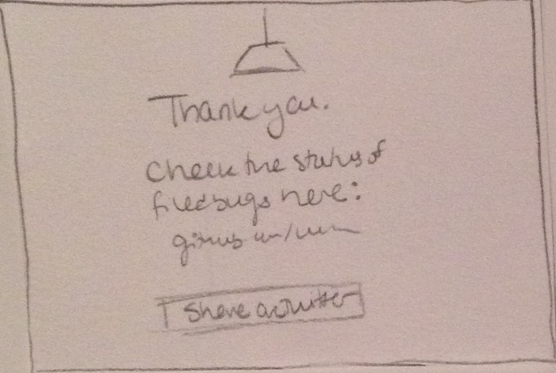 Thank you.
Check the status of
filed bugs here:
github
Share on twitter